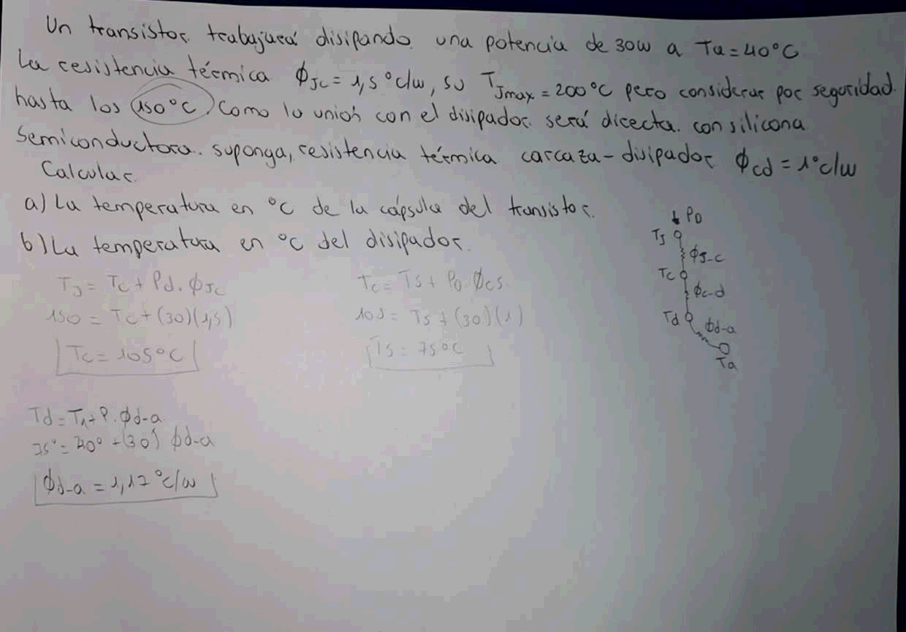 Un transistor trabajará disipando una potencia de 30W a Ta=40°C
La resistencia térmica ϕJC = 1,5 °C/W, su TJmax = 200°C pero considerar por seguridad
hasta los 150°C. Como la unión con el disipador será directa con silicona
semiconductora. suponga, resistencia térmica carcaza-disipador ϕcd = 1°C/W
Calcular.
a) La temperatura en °C de la cápsula del transistor.
b) La temperatura en °C del disipador.
TJ = TC + Pd.ϕJC
150 = TC + (30)(1,5)
TC = 105°C
TC = TS + PD.ϕCS
105 = TS + (30)(1)
TS = 75°C
PD
TJ
ϕJ-C
TC
ϕC-d
Td
ϕd-a
Ta
Td = Ta + P.ϕd-a
75° = 40° + (30) ϕd-a
ϕd-a = 1,17 °C/W